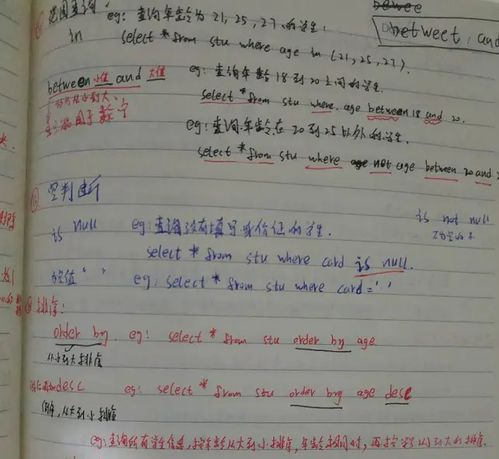 范围查询: eg: 查询年龄为 21, 25, 27 的学生
in select * from stu where age in (21, 25, 27).
between, and
between 小值 and 大值 eg: 查询年龄18到20之间的学生.
select * from stu where age between 18 and 20.
用于数字
eg: 查询年龄在20到25以外的学生.
select * from stu where not age between 20 and
空判断
is null eg: 查询没有填写身份证的学生. is not null
select * from stu where card is null.
空值 ' ' eg: select * from stu where card=' '
排序:
order by eg: select * from stu order by age
从小到大排序
desc eg: select * from stu order by age desc
倒序, 从大到小排序
eg: 查询所有学生信息, 按年龄从大到小排序, 年龄相同时, 再按 从小到大排序.